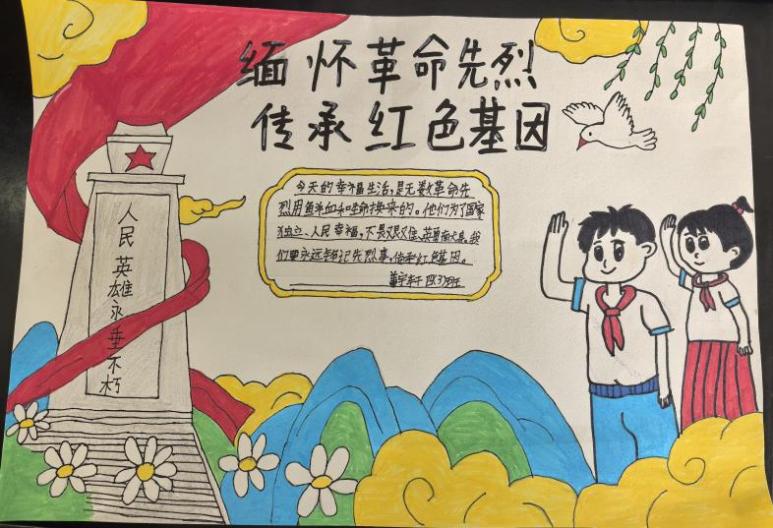 缅怀革命先烈
传承红色基因
今天的幸福生活,是无数革命先
烈用鲜血和生命换来的。他们为了国家
独立、人民幸福,不畏艰难、英勇奋斗。我
们要永远铭记先烈事,传承红色基因。
人民英雄永垂不朽